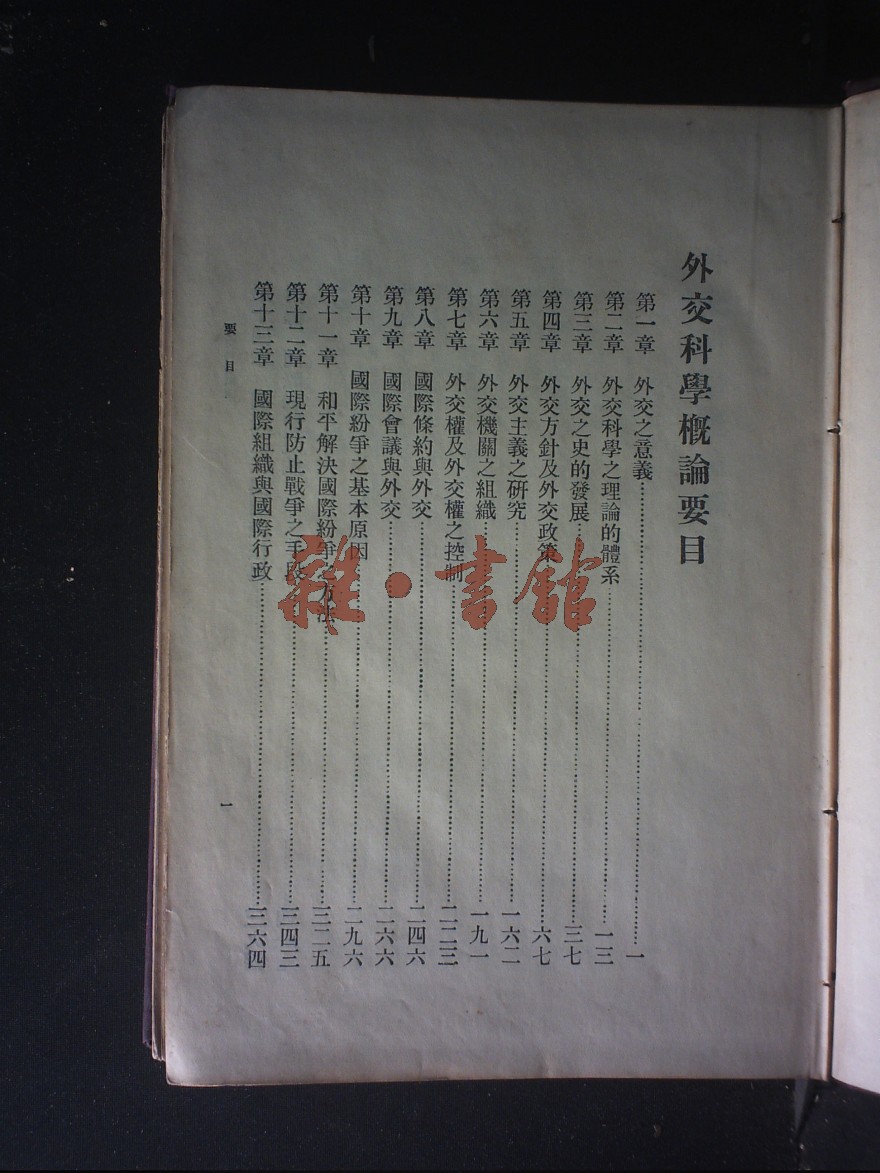 外交科學概論要目
第一章 外交之意義 一
第二章 外交科學之理論的體系 一三
第三章 外交之史的發展 三七
第四章 外交方針及外交政策 六七
第五章 外交主義之研究 一六二
第六章 外交機關之組織 一九一
第七章 外交權及外交權之控制 二二三
第八章 國際條約與外交 二四六
第九章 國際會議與外交 二六六
第十章 國際紛爭之基本原因 二九六
第十一章 和平解決國際紛爭之方法 三二五
第十二章 現行防止戰爭之手段 三四三
第十三章 國際組織與國際行政 三六四
要目 一
雜·書館